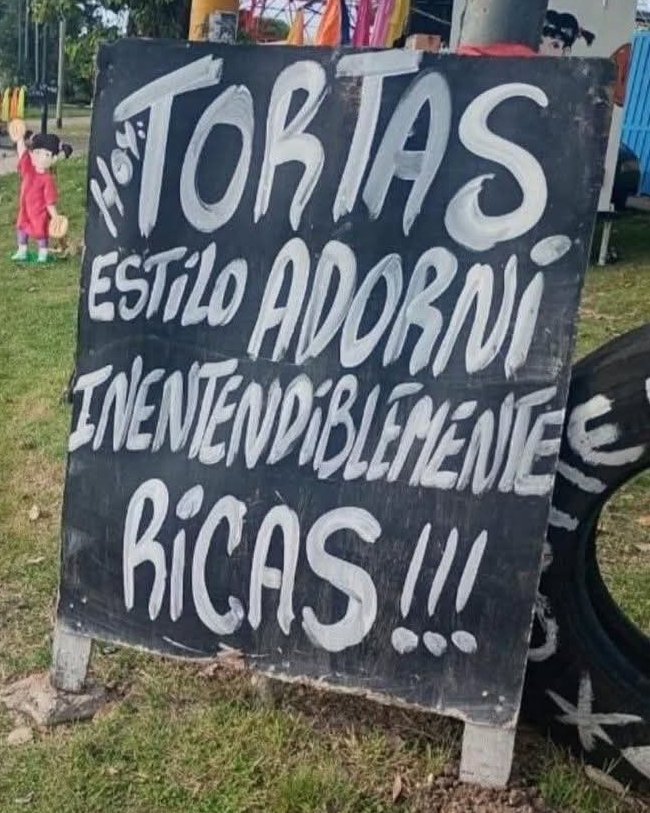 HOY: TORTAS
ESTILO ADORNI
INENTENDIBLEMENTE
RICAS!!!